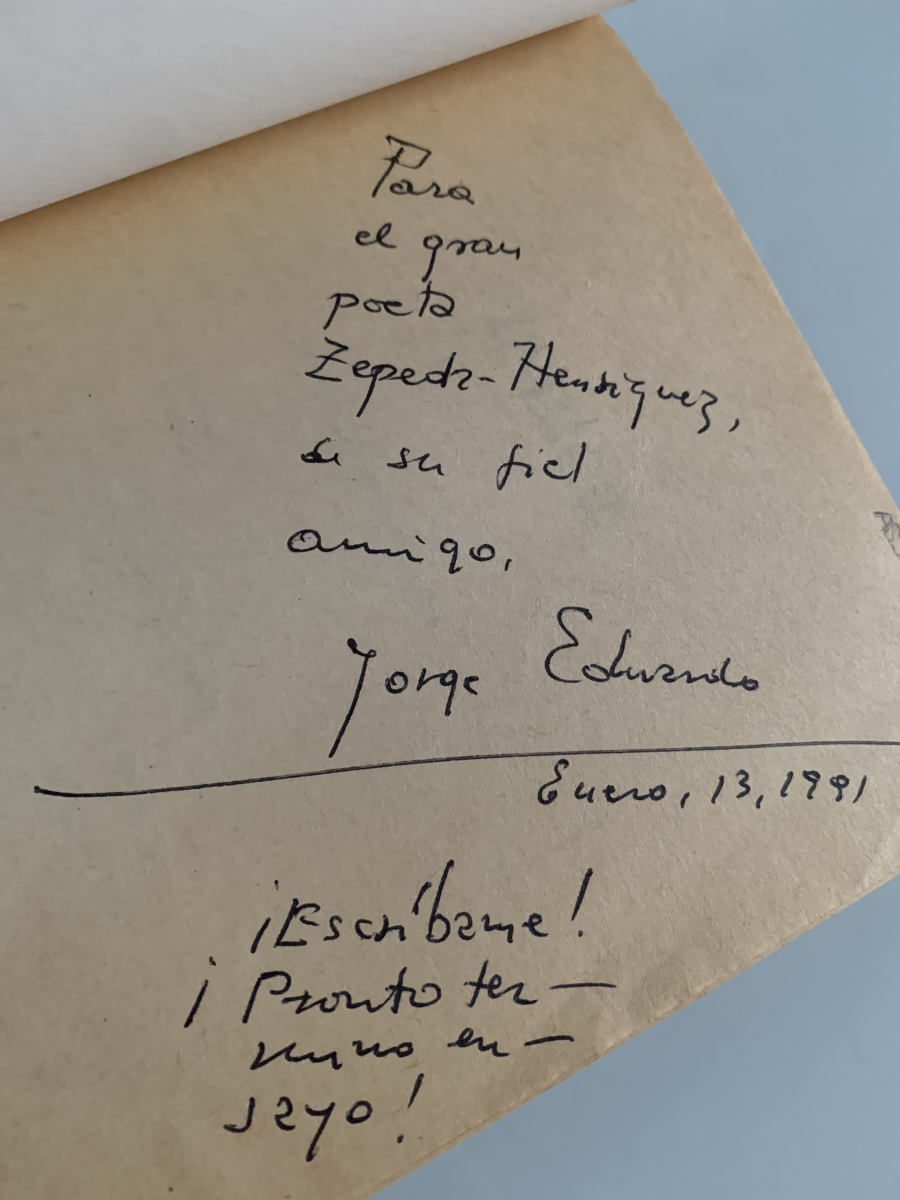 Para
el gran
poeta
Zepeda-Henríquez,
de su fiel
amigo,
Jorge Eduardo
Enero, 13, 1991
¡Escríbame!
¡Pronto ter—
mino en—
sayo!